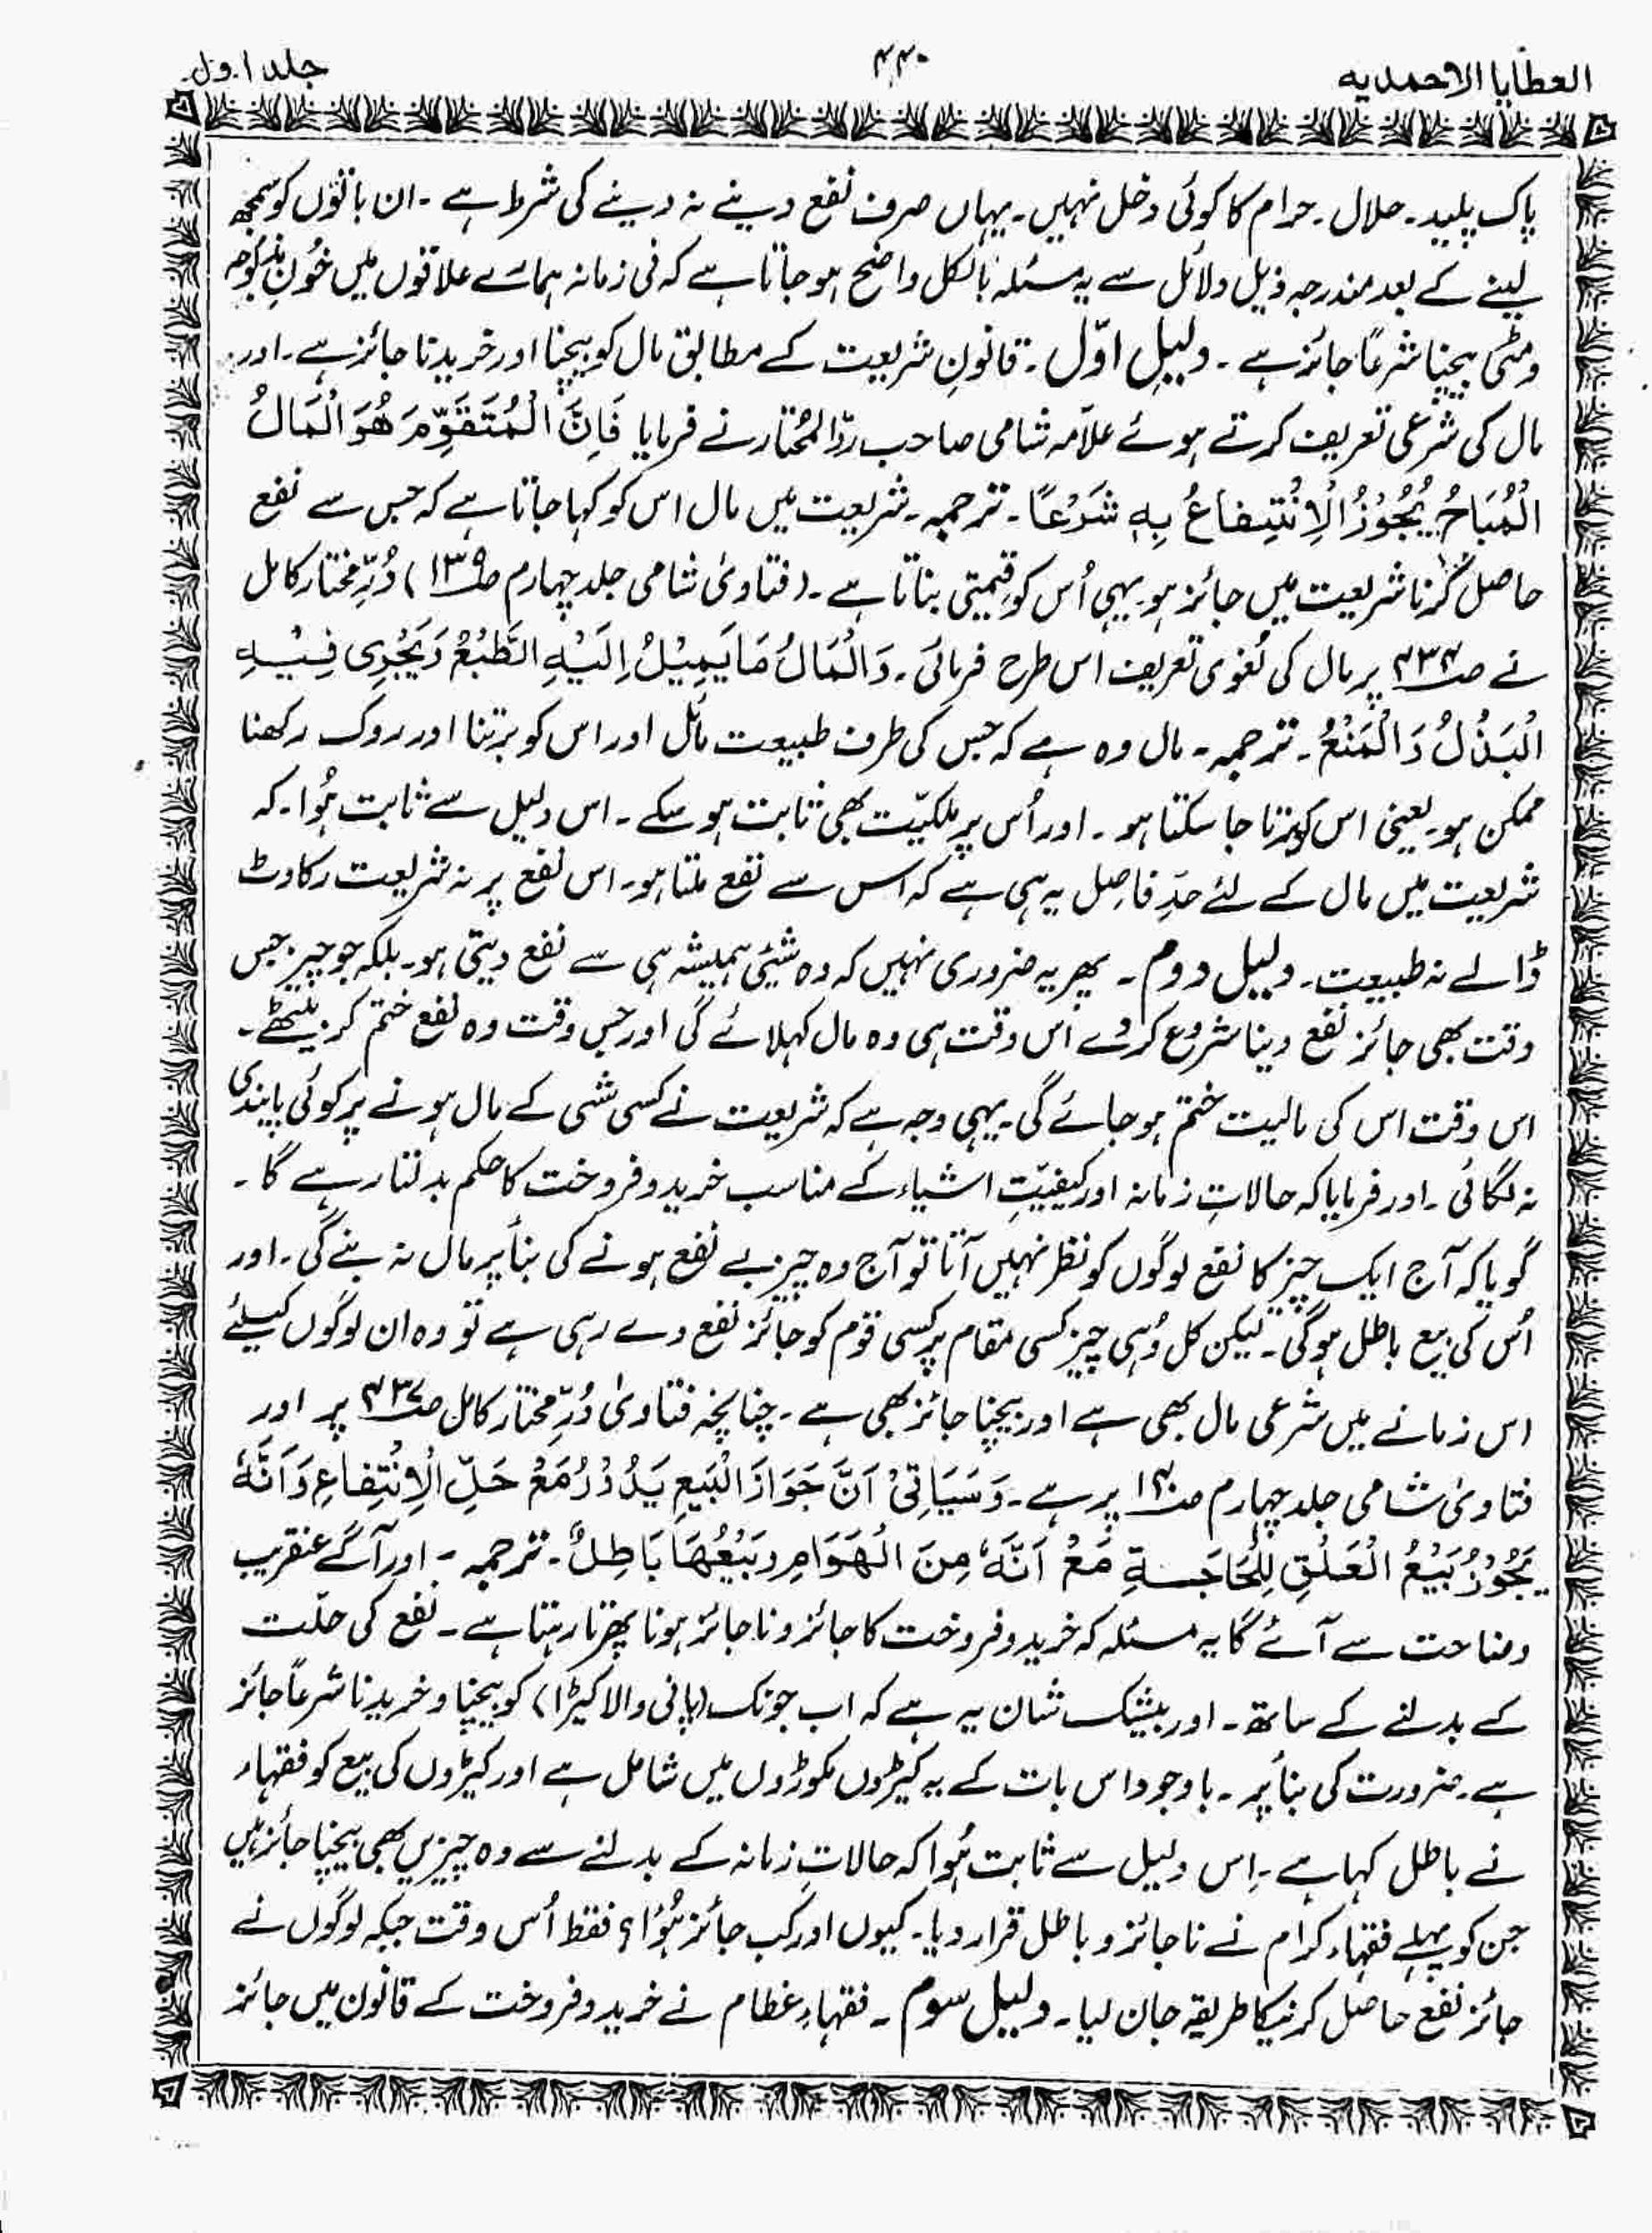 العطایا الاحمدیہ
۴۴۰
جلد اول
پاک پلید۔ حلال۔ حرام کا کوئی دخل نہیں۔ یہاں صرف نفع دینے نہ دینے کی شرط ہے۔ ان باتوں کو سمجھ
لینے کے بعد مندرجہ ذیل دلائل سے یہ مسئلہ بالکل واضح ہو جاتا ہے کہ فی زمانہ ہمارے علاقوں میں خُونِ مذبوحہ
و مٹی بیچنا شرعاً جائز ہے۔ دلیلِ اوّل۔ قانونِ شریعت کے مطابق مال کو بیچنا اور خریدنا جائز ہے۔ اور
مال کی شرعی تعریف کرتے ہوئے علاّمہ شامی صاحب ردّالمُحتار نے فرمایا فَاِنَّ الْمُتَقَوِّمَ هُوَ الْمَالُ
الْمُبَاحُ یُجُوْزُ الْاِنْتِفَاعُ بِهٖ شَرْعًا۔ ترجمہ۔ شریعت میں مال اس کو کہا جاتا ہے کہ جس سے نفع
حاصل کرنا شریعت میں جائز ہو یہی اُس کو قیمتی بناتا ہے۔ (فتاویٰ شامی جلد چہارم صـ۱۳۹) دُرِّ مختار کامل
نے صـ۴۳۴ پر مال کی لُغوی تعریف اس طرح فرمائی۔ وَالْمَالُ مَا یَمِیْلُ اِلَیْهِ الطَّبْعُ وَیَجْرِی فِیْهِ
الْبَذْلُ وَالْمَنْعُ۔ ترجمہ۔ مال وہ ہے کہ جس کی طرف طبیعت مائل اور اس کو برتنا اور روک رکھنا
ممکن ہو۔ یعنی اس کو برتا جا سکتا ہو۔ اور اُس پر ملکیّت بھی ثابت ہو سکے۔ اس دلیل سے ثابت ہُوا۔ کہ
شریعت میں مال کے لئے حدِّ فاصِل یہ ہی ہے کہ اس سے نفع ملتا ہو۔ اس نفع پر نہ شریعت رکاوٹ
ڈالے نہ طبیعت۔ دلیل دوم۔ پھر یہ ضروری نہیں کہ وہ شئی ہمیشہ ہی سے نفع دیتی ہو۔ بلکہ جو چیز جس
وقت بھی جائز نفع دینا شروع کر دے اُس وقت ہی وہ مال کہلائے گی اور جس وقت وہ نفع ختم کر بیٹھے۔
اس وقت اس کی مالیت ختم ہو جائے گی۔ یہی وجہ ہے کہ شریعت نے کسی شئی کے مال ہونے پر کوئی پابندی
نہ لگائی۔ اور فرمایا کہ حالاتِ زمانہ اور کیفیّتِ اشیاء کے مناسب خرید و فروخت کا حکم بدلتا رہے گا۔
گویا کہ آج ایک چیز کا نفع لوگوں کو نظر نہیں آتا تو آج وہ چیز بے نفع ہونے کی بنأ پر مال نہ بنے گی۔ اور
اُس کی بیع باطل ہو گی۔ لیکن کل وُہی چیز کسی مقام پر کسی قوم کو جائز نفع دے رہی ہے تو وہ ان لوگوں کیلئے
اس زمانے میں شرعی مال بھی ہے اور بیچنا جائز بھی ہے۔ چنانچہ فتاویٰ دُرِّ مختار کامل صـ۴۳۷ پر اور
فتاویٰ شامی جلد چہارم صـ۱۴۰ پر ہے۔ وَسَیَاتِیْ اَنَّ جَوَازَ الْبَیَعِ یَدُوْرُ مَعُ حَلِّ الْاِنْتِفَاعِ وَاَنَّهٗ
یَجُوْزُ بَیْعُ الْعَلْقِ لِلْحَاجَـةِ مَعْ اَنَّهٗ مِنَ الْهَوَامِ وبَیْعُهَا بَاطِلٌ۔ ترجمہ۔ اور آگے عنقریب
وضاحت سے آئے گا یہ مسئلہ کہ خرید و فروخت کا جائز و ناجائز ہونا پھرتا رہتا ہے۔ نفع کی حلّت
کے بدلنے کے ساتھ۔ اور بیشک شان یہ ہے کہ اب جونک (پانی والا کیڑا) کو بیچنا و خریدنا شرعاً جائز
ہے۔ ضرورت کی بنأ پر۔ باوجود اس بات کے یہ کیڑوں مکوڑوں میں شامل ہے اور کیڑوں کی بیع کو فقہاء
نے باطل کہا ہے۔ اِس دلیل سے ثابت ہُوا کہ حالاتِ زمانہ کے بدلنے سے وہ چیزیں بھی بیچنا جائز ہیں
جن کو پہلے فقہاء کرام نے ناجائز و باطل قرار دیا۔ کیوں اور کب جائز ہُوا؟ فقط اُس وقت جبکہ لوگوں نے
جائز نفع حاصل کرنیکا طریقہ جان لیا۔ دلیل سوم۔ فقہاءِ عظام نے خرید و فروخت کے قانون میں جائز